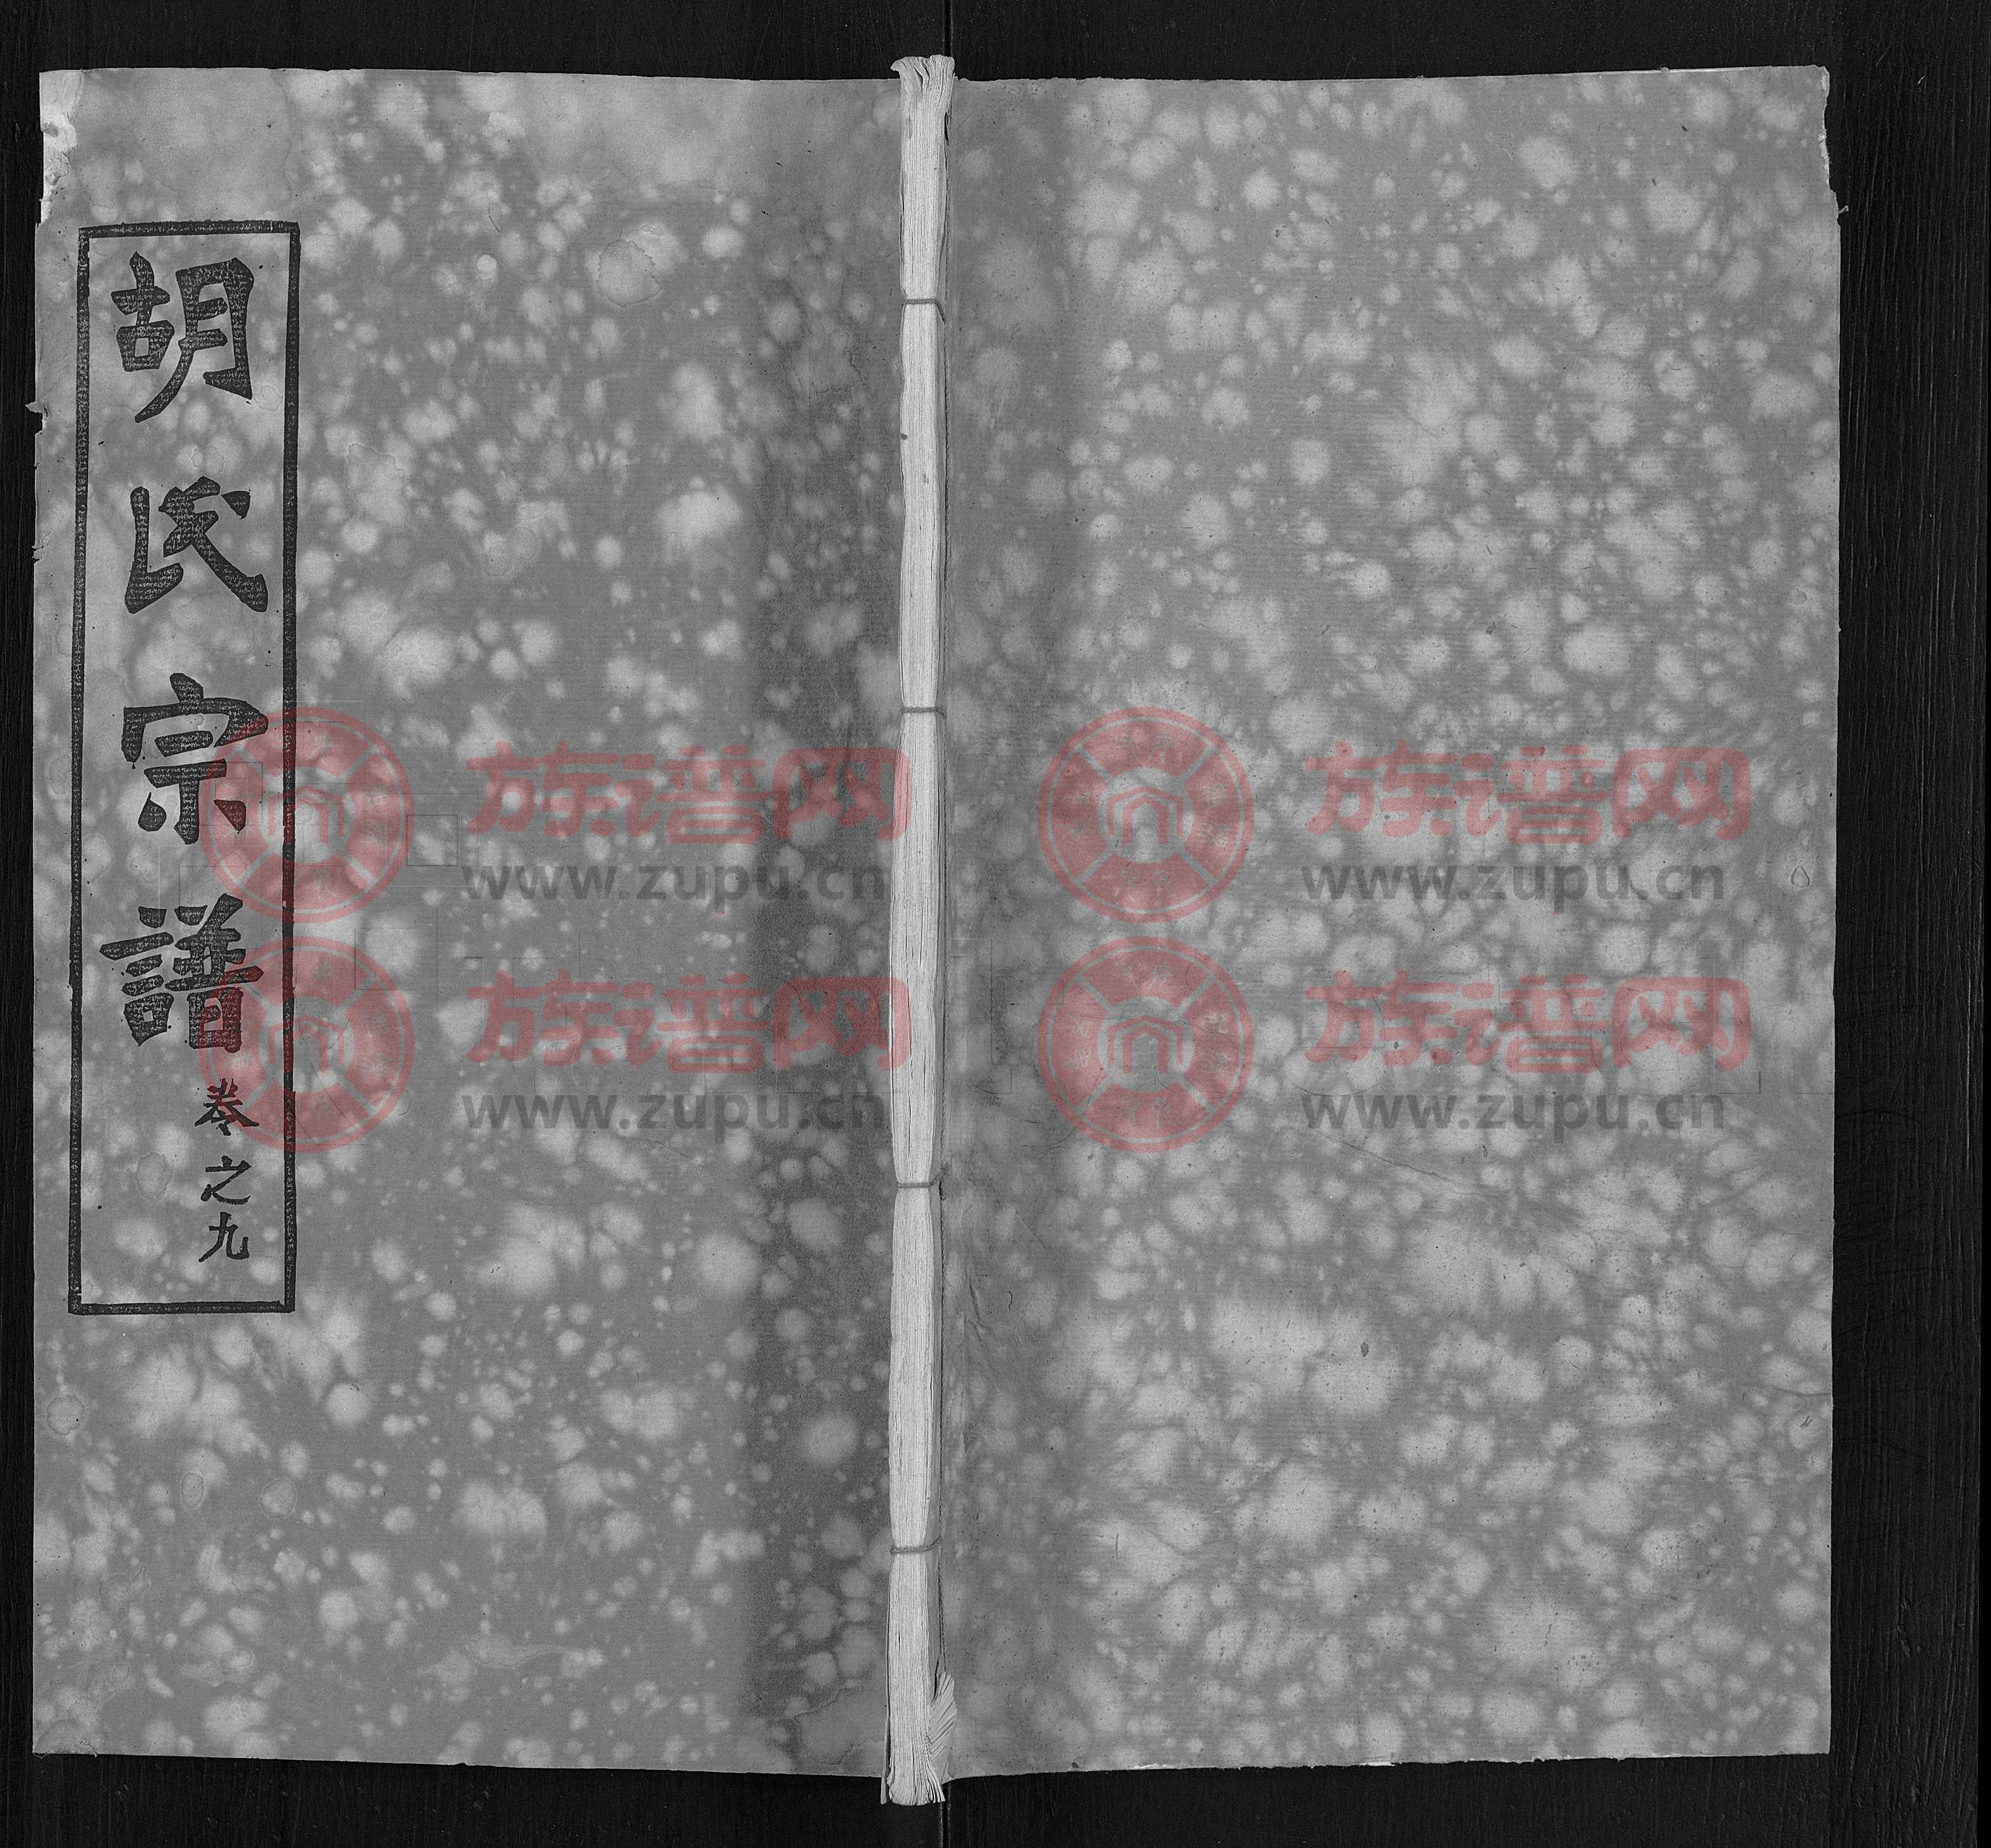 胡氏宗譜
卷之九
族谱网
www.zupu.cn
族谱网
www.zupu.cn
族谱网
www.zupu.cn
族谱网
www.zupu.cn